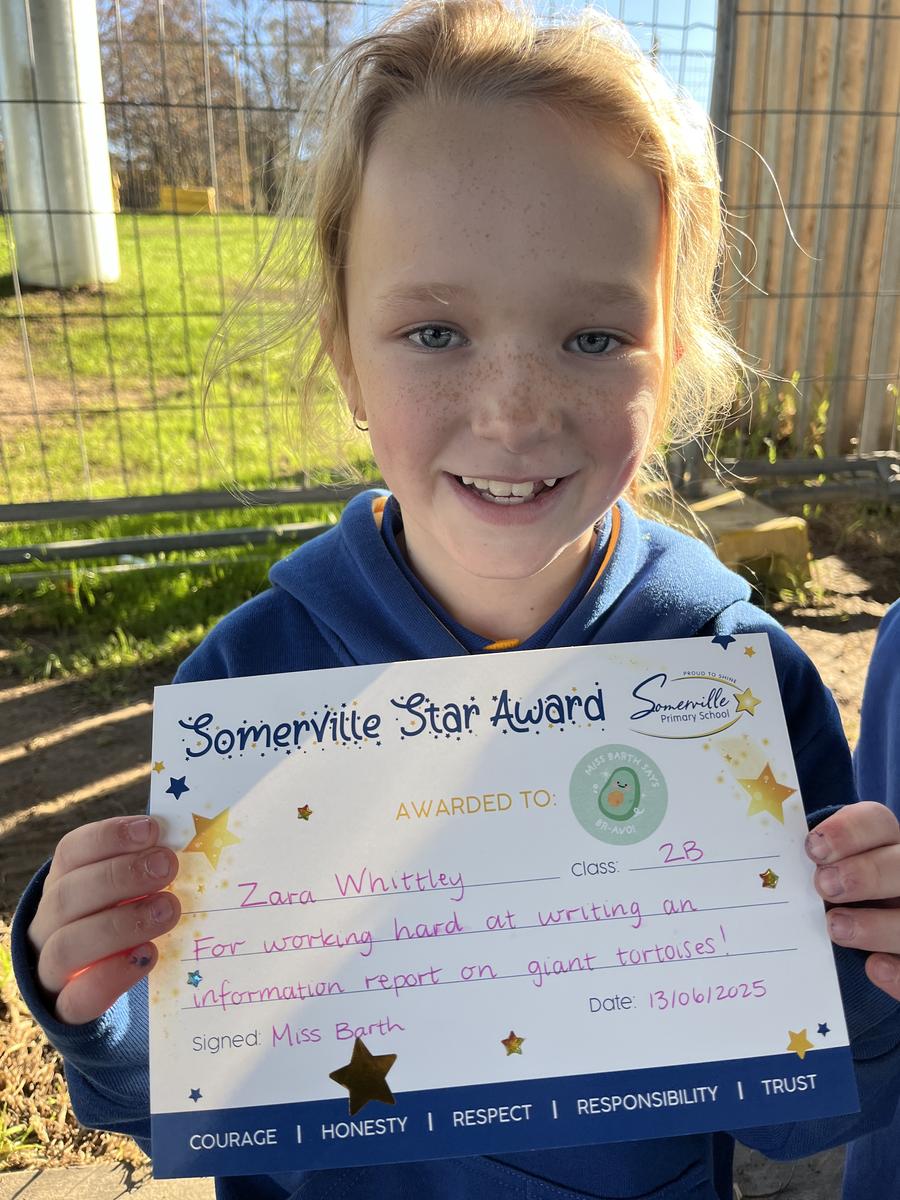 Somerville Star Award
PROUD TO SHINE
Somerville
Primary School
AWARDED TO:
MISS BARTH SAYS
BR-AVO!
Zara Whittley Class: 2B
For working hard at writing an
information report on giant tortoises!
Signed: Miss Barth Date: 13/06/2025
COURAGE | HONESTY | RESPECT | RESPONSIBILITY | TRUST